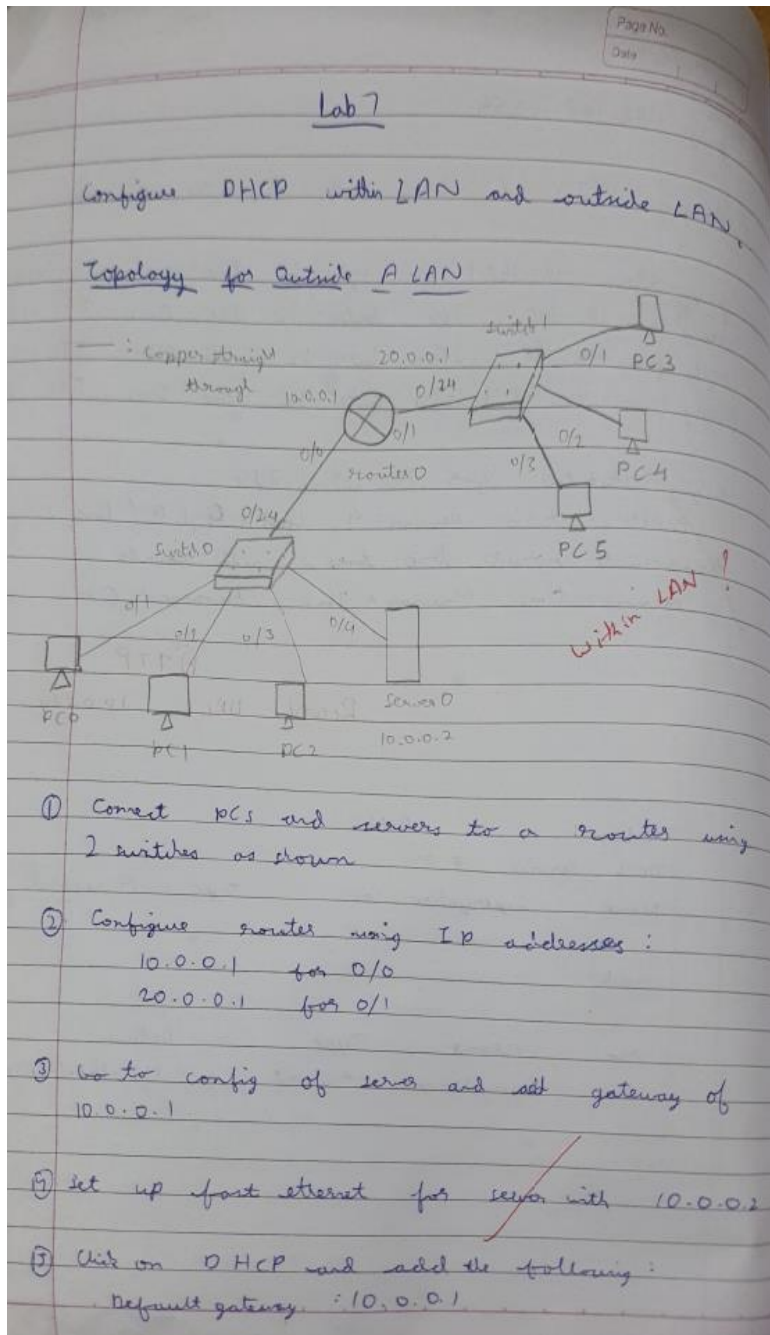 Page No.
Date
Lab 7
Configure DHCP within LAN and outside LAN.
Topology for Outside A LAN
— : Copper straight
through
switch 1
20.0.0.1
10.0.0.1
0/24
0/1
PC3
0/0
0/1
router 0
0/2
PC4
0/3
PC5
0/24
switch 0
within LAN !
0/1
0/2
0/3
0/4
PC0
PC1
PC2
Server 0
10.0.0.2
① Connect PCs and servers to a router using
2 switches as shown
② Configure router using IP addresses :
10.0.0.1 for 0/0
20.0.0.1 for 0/1
③ Go to config of server and add gateway of
10.0.0.1
④ Set up fast ethernet for server with 10.0.0.2
⑤ Click on DHCP and add the following :
Default gateway : 10.0.0.1